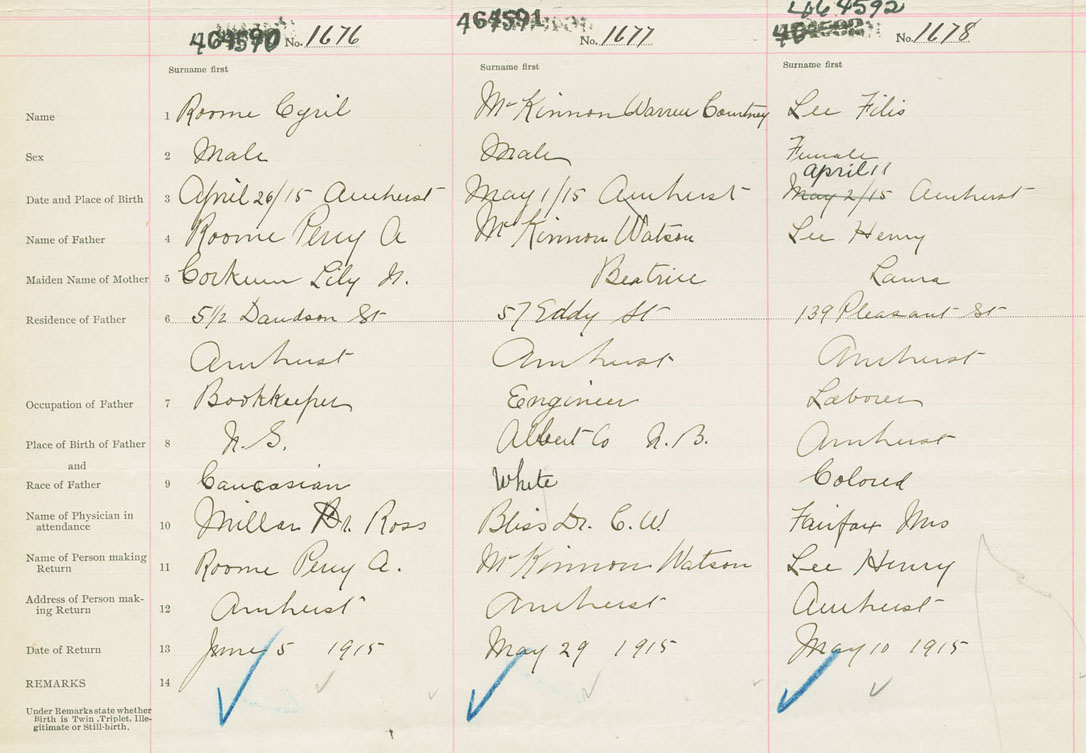 464590 No. 1676 464591 No. 1677 464592 No. 1678
Surname first Surname first Surname first
Name 1 Roome Cyril McKinnon Warren Courtney Lee Filis
Sex 2 Male Male Female
April 11
Date and Place of Birth 3 April 26/15 Amherst May 1/15 Amherst May 2/15 Amherst
Name of Father 4 Roome Percy A McKinnon Watson Lee Henry
Maiden Name of Mother 5 Corkum Lily N. Beatrice Laura
Residence of Father 6 5 1/2 Davidson St 57 Eddy St 139 Pleasant St
Amherst Amherst Amherst
Occupation of Father 7 Bookkeeper Engineer Laborer
Place of Birth of Father 8 N. S. Albert Co N. B. Amherst
and
Race of Father 9 Caucasian White Colored
Name of Physician in
attendance 10 Millar Dr. Ross Bliss Dr. C. W. Fairfax Mrs
Name of Person making
Return 11 Roome Percy A. McKinnon Watson Lee Henry
Address of Person mak-
ing Return 12 Amherst Amherst Amherst
Date of Return 13 June 5 1915 May 29 1915 May 10 1915
REMARKS 14
Under Remarks state whether
Birth is Twin, Triplet, Ille-
gitimate or Still-birth.